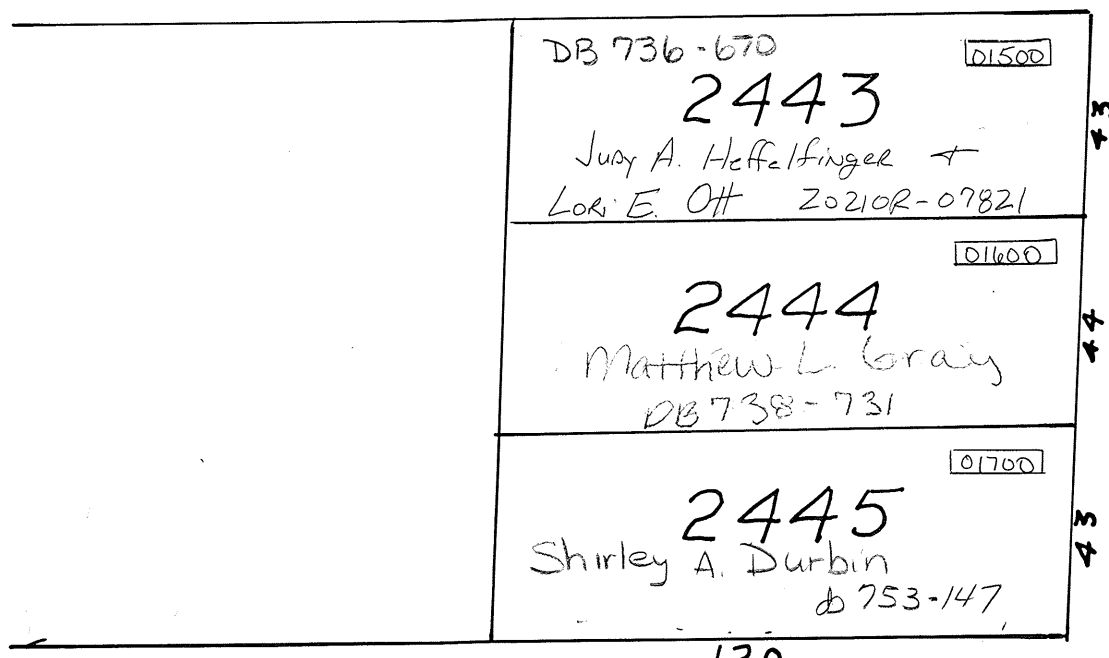 DB 736-670 01500
2443
Judy A. Heffelfinger +
Lori E. Ott 20210R-07821
43
01600
2444
Matthew L. Gray
DB 738-731
44
01700
2445
Shirley A. Durbin
db 753-147
43